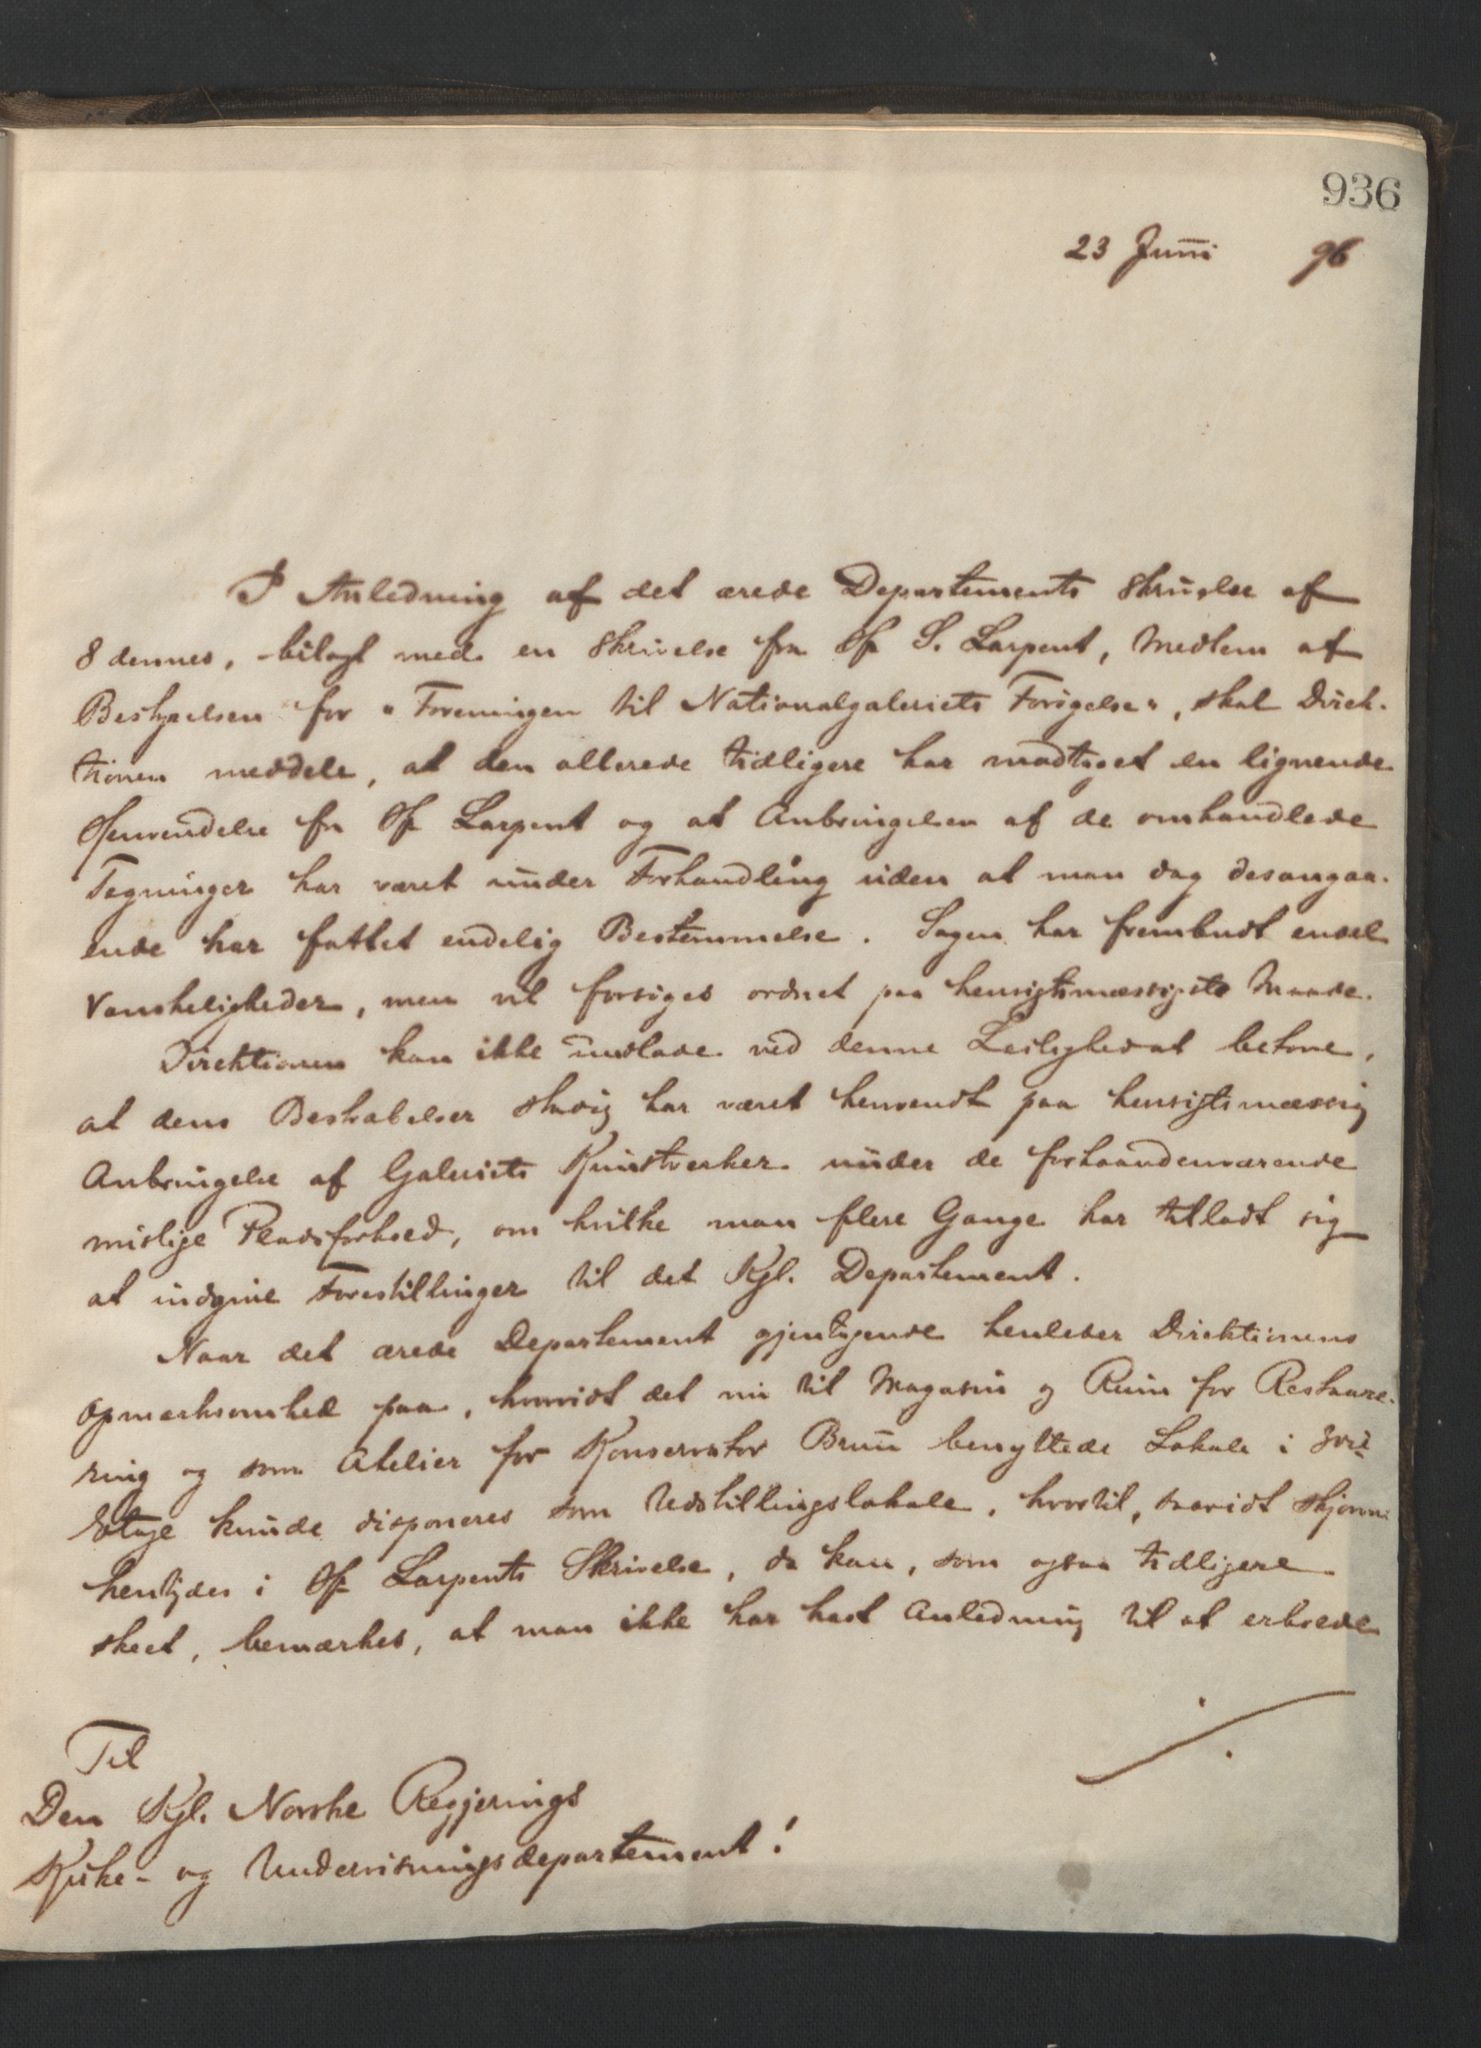 936
23 Juni 96
I Anledning af det ærede Departements Skrivelse af
8 dennes, bilagt med en Skrivelse fra Hr S. Larpent, Medlem af
Bestyrelsen for "Foreningen til Nationalgaleriets Forøgelse", skal Direk-
tionen meddele, at den allerede tidligere har modtaget en lignende
Henvendelse fra Hr Larpent og at Anbringelsen af de omhandlede
Tegninger har været under Forhandling uden at man dog desangaa-
ende har fattet endelig Bestemmelse. Sagen har frembudt endel
Vanskeligheder, men vil forsøges ordnet paa hensigtsmæssigste Maade.
Direktionen kan ikke undlade ved denne Leilighed at betone,
at dens Bestræbelser stadig har været henvendt paa hensigtsmæssig
Anbringelse af Galeriets Kunstverker under de forhaandenværende
mislige Pladsforhold, om hvilke man flere Gange har tilladt sig
at indgive Forestillinger til det Kgl. Departement.
Naar det ærede Departement gjentagende henleder Direktionens
Opmærksomhed paa, hvorvidt det nu til Magasin og Rum for Restaure-
ring og som Atelier for Konservator Bruun benyttede Lokale i 3die
Etage kunde disponeres som Udstillingslokale, hvortil, saavidt skjønnes
hentydes i Hr Larpents Skrivelse, da kan, som ogsaa tidligere
skeet, bemærkes, at man ikke har havt Anledning til at erholde
./.
Til
Den Kgl. Norske Regjerings
Kirke- og Undervisningsdepartement!